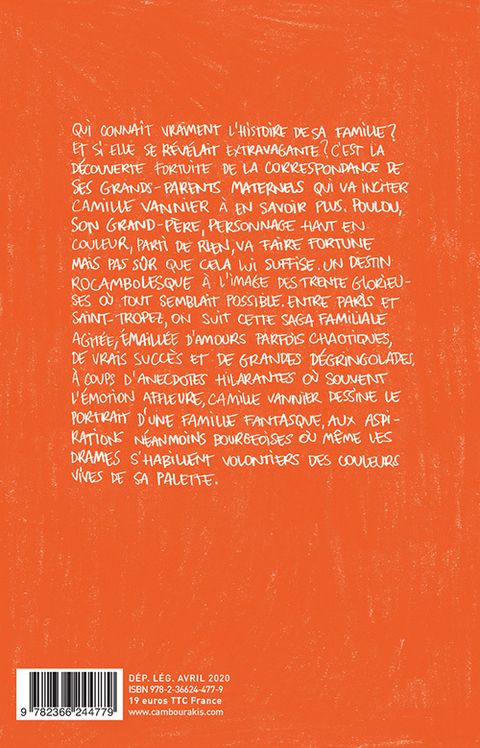 QUI CONNAÎT VRAIMENT L'HISTOIRE DE SA FAMILLE ?
ET SI ELLE SE RÉVÉLAIT EXTRAVAGANTE ? C'EST LA
DÉCOUVERTE FORTUITE DE LA CORRESPONDANCE DE
SES GRANDS-PARENTS MATERNELS QUI VA INCITER
CAMILLE VANNIER À EN SAVOIR PLUS. POULOU,
SON GRAND-PÈRE, PERSONNAGE HAUT EN
COULEUR, PARTI DE RIEN, VA FAIRE FORTUNE
MAIS PAS SÛR QUE CELA LUI SUFFISE. UN DESTIN
ROCAMBOLESQUE À L'IMAGE DES TRENTE GLORIEU-
SES OÙ TOUT SEMBLAIT POSSIBLE. ENTRE PARIS ET
SAINT-TROPEZ, ON SUIT CETTE SAGA FAMILIALE
AGITÉE, ÉMAILLÉE D'AMOURS PARFOIS CHAOTIQUES,
DE VRAIS SUCCÈS ET DE GRANDES DÉGRINGOLADES.
À COUPS D'ANECDOTES HILARANTES OÙ SOUVENT
L'ÉMOTION AFFLEURE, CAMILLE VANNIER DESSINE LE
PORTRAIT D'UNE FAMILLE FANTASQUE, AUX ASPI-
RATIONS NÉANMOINS BOURGEOISES OÙ MÊME LES
DRAMES S'HABILLENT VOLONTIERS DES COULEURS
VIVES DE SA PALETTE.
DÉP. LÉG. AVRIL 2020
ISBN 978-2-36624-477-9
19 euros TTC France
www.cambourakis.com
9 782366 244779